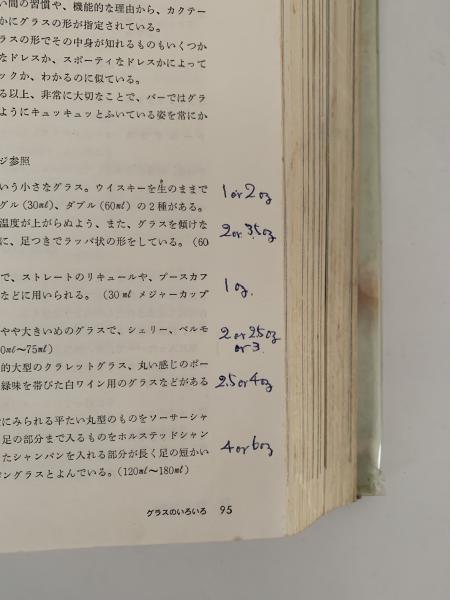 い間の習慣や、機能的な理由から、カクテー
かにグラスの形が指定されている。
ラスの形でその中身が知れるものもいくつか
なドレスか、スポーティなドレスかによって
ックか、わかるのに似ている。
る以上、非常に大切なことで、バーではグラ
ようにキュッキュッとふいている姿を常にか
ジ参照
いう小さなグラス。ウイスキーを生のままで
グル(30ml)、ダブル(60ml)の2種がある。
1 or 2 oz
温度が上がらぬよう、また、グラスを傾けな
に、足つきでラッパ状の形をしている。(60
2 or 3.5 oz
で、ストレートのリキュールや、プースカフ
などに用いられる。(30ml メジャーカップ
1 oz.
やや大きいめのグラスで、シェリー、ベルモ
0ml〜75ml)
2 or 2.5 oz
or 3.
的大型のクラレットグラス、丸い感じのポー
緑味を帯びた白ワイン用のグラスなどがある
2.5 or 4 oz
にみられる平たい丸型のものをソーサーシャ
足の部分まで入るものをホルステッドシャン
たシャンパンを入れる部分が長く足の短かい
ングラスとよんでいる。(120ml〜180ml)
4 or 6 oz
グラスのいろいろ 95